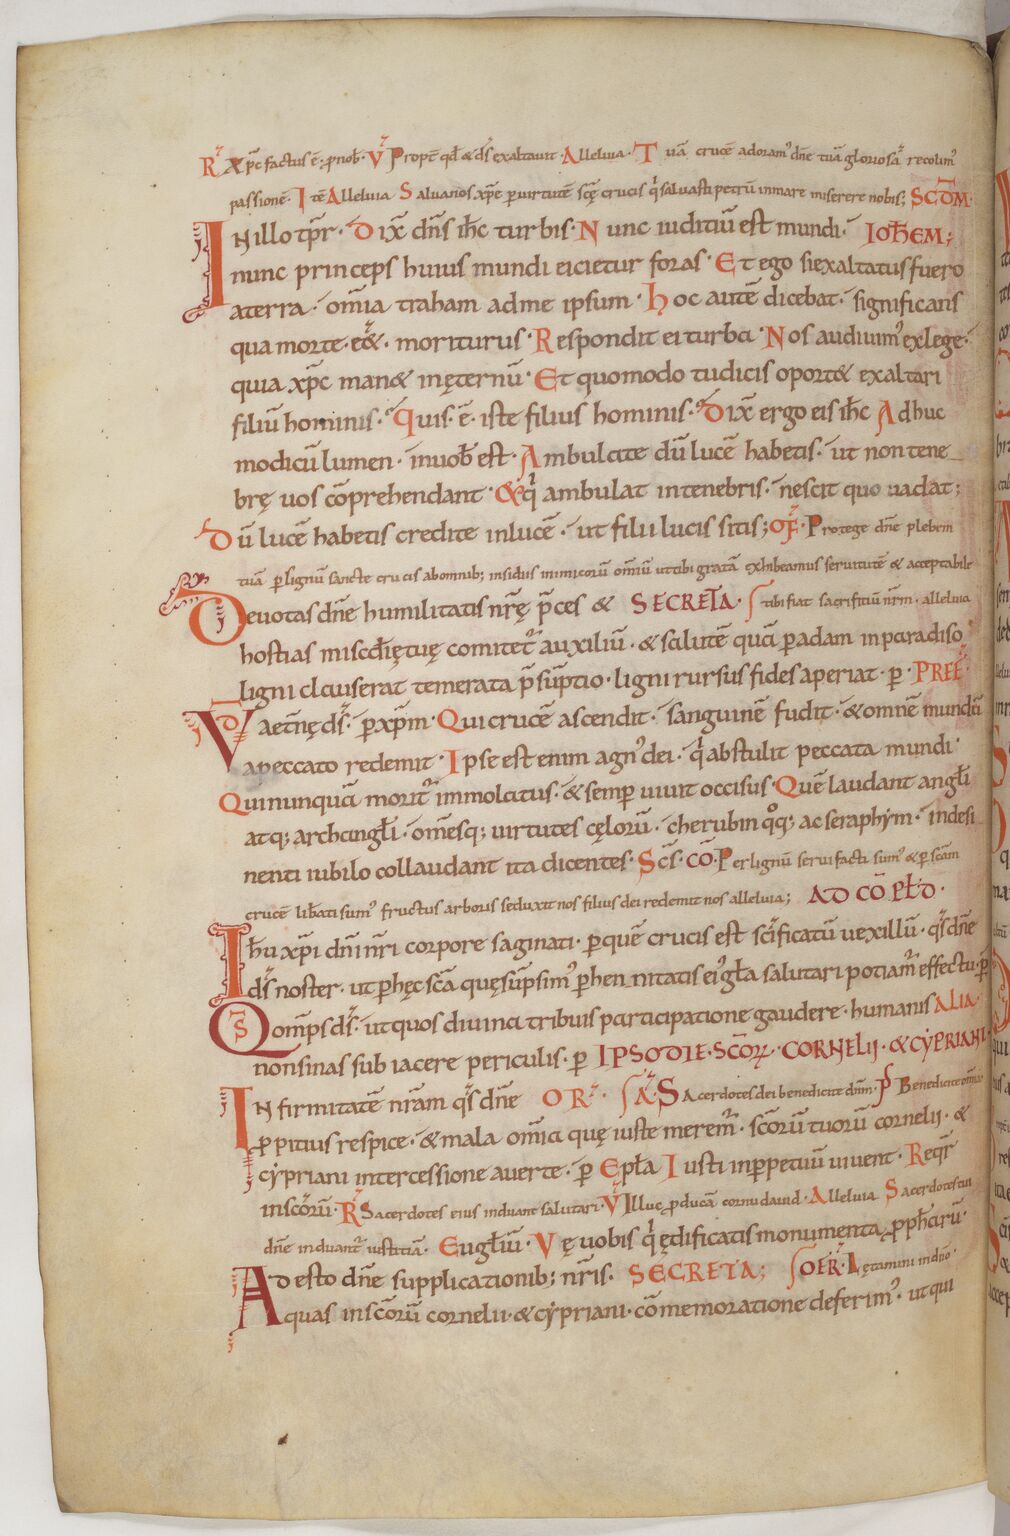 R̃ Xp̄c factus ē· p nob̄· V̄ Propt̄ qd̄ & d̄s exaltauit· Alleluia· Tuā crucē adoram᾽ dn̄e tuā gloriosā recolim᾽
passionē· Itē Alleluia Saluanos xp̄e p uirtutē sc̄ę crucis q̍ saluasti petrū inmare miserere nobis; SC̄DM·
IN illo tp̄r· Dix̄ dn̄s ih̄c turbis· Nunc iuditiū est mundi· IOH̄EM;
nunc princeps huius mundi eicietur foras· Et ego siexaltatus fuero
aterra· om̄ia traham adme ipsum· Hoc autē dicebat· significans
qua morte· eēt· moriturus· Respondit ei turba· Nos audiuim᾽ exlege·
quia xp̄c man& inęternū· Et quomodo tu dicis oport& exaltari
filiū hominis· Quis· ē· iste filius hominis· Dix̄ ergo eis ih̄c Adhuc
modicū lumen· inuob̄ est· Ambulate dū lucē habetis· ut non tene
brę uos cōprehendant· & q̍ ambulat intenebris· nescit quo uadat;
Dū lucē habetis credite inlucē· ut filii lucis sitis; OF̄· Protege dn̄e plebem
tuā p lignū sancte crucis abomnib; insidiis inimicorū omniū ut tibi gratā exhibeamus seruitutē & acceptabile
Deuotas dn̄e humilitatis nr̄ę p̄ces & SECRETA· tibi fiat sacrifitiū nr̄m· alleluia
hostias misc̄dię tuę comitet᾽ auxiliū· & salutē quā p adam inparadiso
ligni clauserat temerata p̄sūptio· ligni rursus fides aperiat· p· PREF̄·
VD aet̄nę d̄s· p xp̄m· Qui crucē ascendit· sanguinē fudit· & omnē mundū
apeccato redemit· Ipse est enim agn᾽ dei· q̍ abstulit peccata mundi·
Qui nunquā morit᾽ immolatus· & semp uiuit occisus· Quē laudant angl̄i
atq; archangl̄i· om̄esq; uirtutes cęlorū· cherubin q̊q; ac seraphym· indesi
nenti iubilo collaudant ita dicentes· Sc̄s· CŌ· Per lignū serui facti sum᾽ & p scām
crucē lib̄ati sum᾽ fructus arboris seduxit nos filius dei redemit nos alleluia; AD CŌPL̄D·
Ih̄u xp̄i dn̄i nr̄i corpore saginati· p quē crucis est scīficatū uexillū· q̄s dn̄e
d̄s noster· ut p hęc scā quę sūpsim᾽ phennitatis ei᾽ gl̄a salutari potiam᾽ effectu· p
Qs om̄ps d̄s· ut quos diuina tribuis participatione gaudere· humanis ALIA·
non sinas subiacere periculis· p IPSO DIE· SC̄ORꝜ· CORNELII· & CYPRIANI·
INfirmitatē nr̄am q̄s dn̄e OR̄· A· Sacerdotes dei benedicite dn̄m· P̄S Benedicite omnia
p pitius respice· & mala om̄ia quę iuste merem᾽· sc̄orū tuorū cornelii· &
cypriani intercessione auerte· p Epl̄a Iusti inp petuū uiuent· Reqr̄
inscōrū· R̃ Sacerdotes eius induant salutari· V̄ Illuc p ducā cornu dauid· Alleluia Sacerdotes tui
dn̄e induant᾽ iustitiā· Eugl̄iū· Vę uobis q̍ ędificatis monumenta p ph̄arū·
Adesto dn̄e supplicationib; nr̄is· SECRETA; OFR̄· Lętamini in dn̄o·
quas in sc̄orū cornelii· & cypriani· cōmemoratione deferim᾽· ut qui